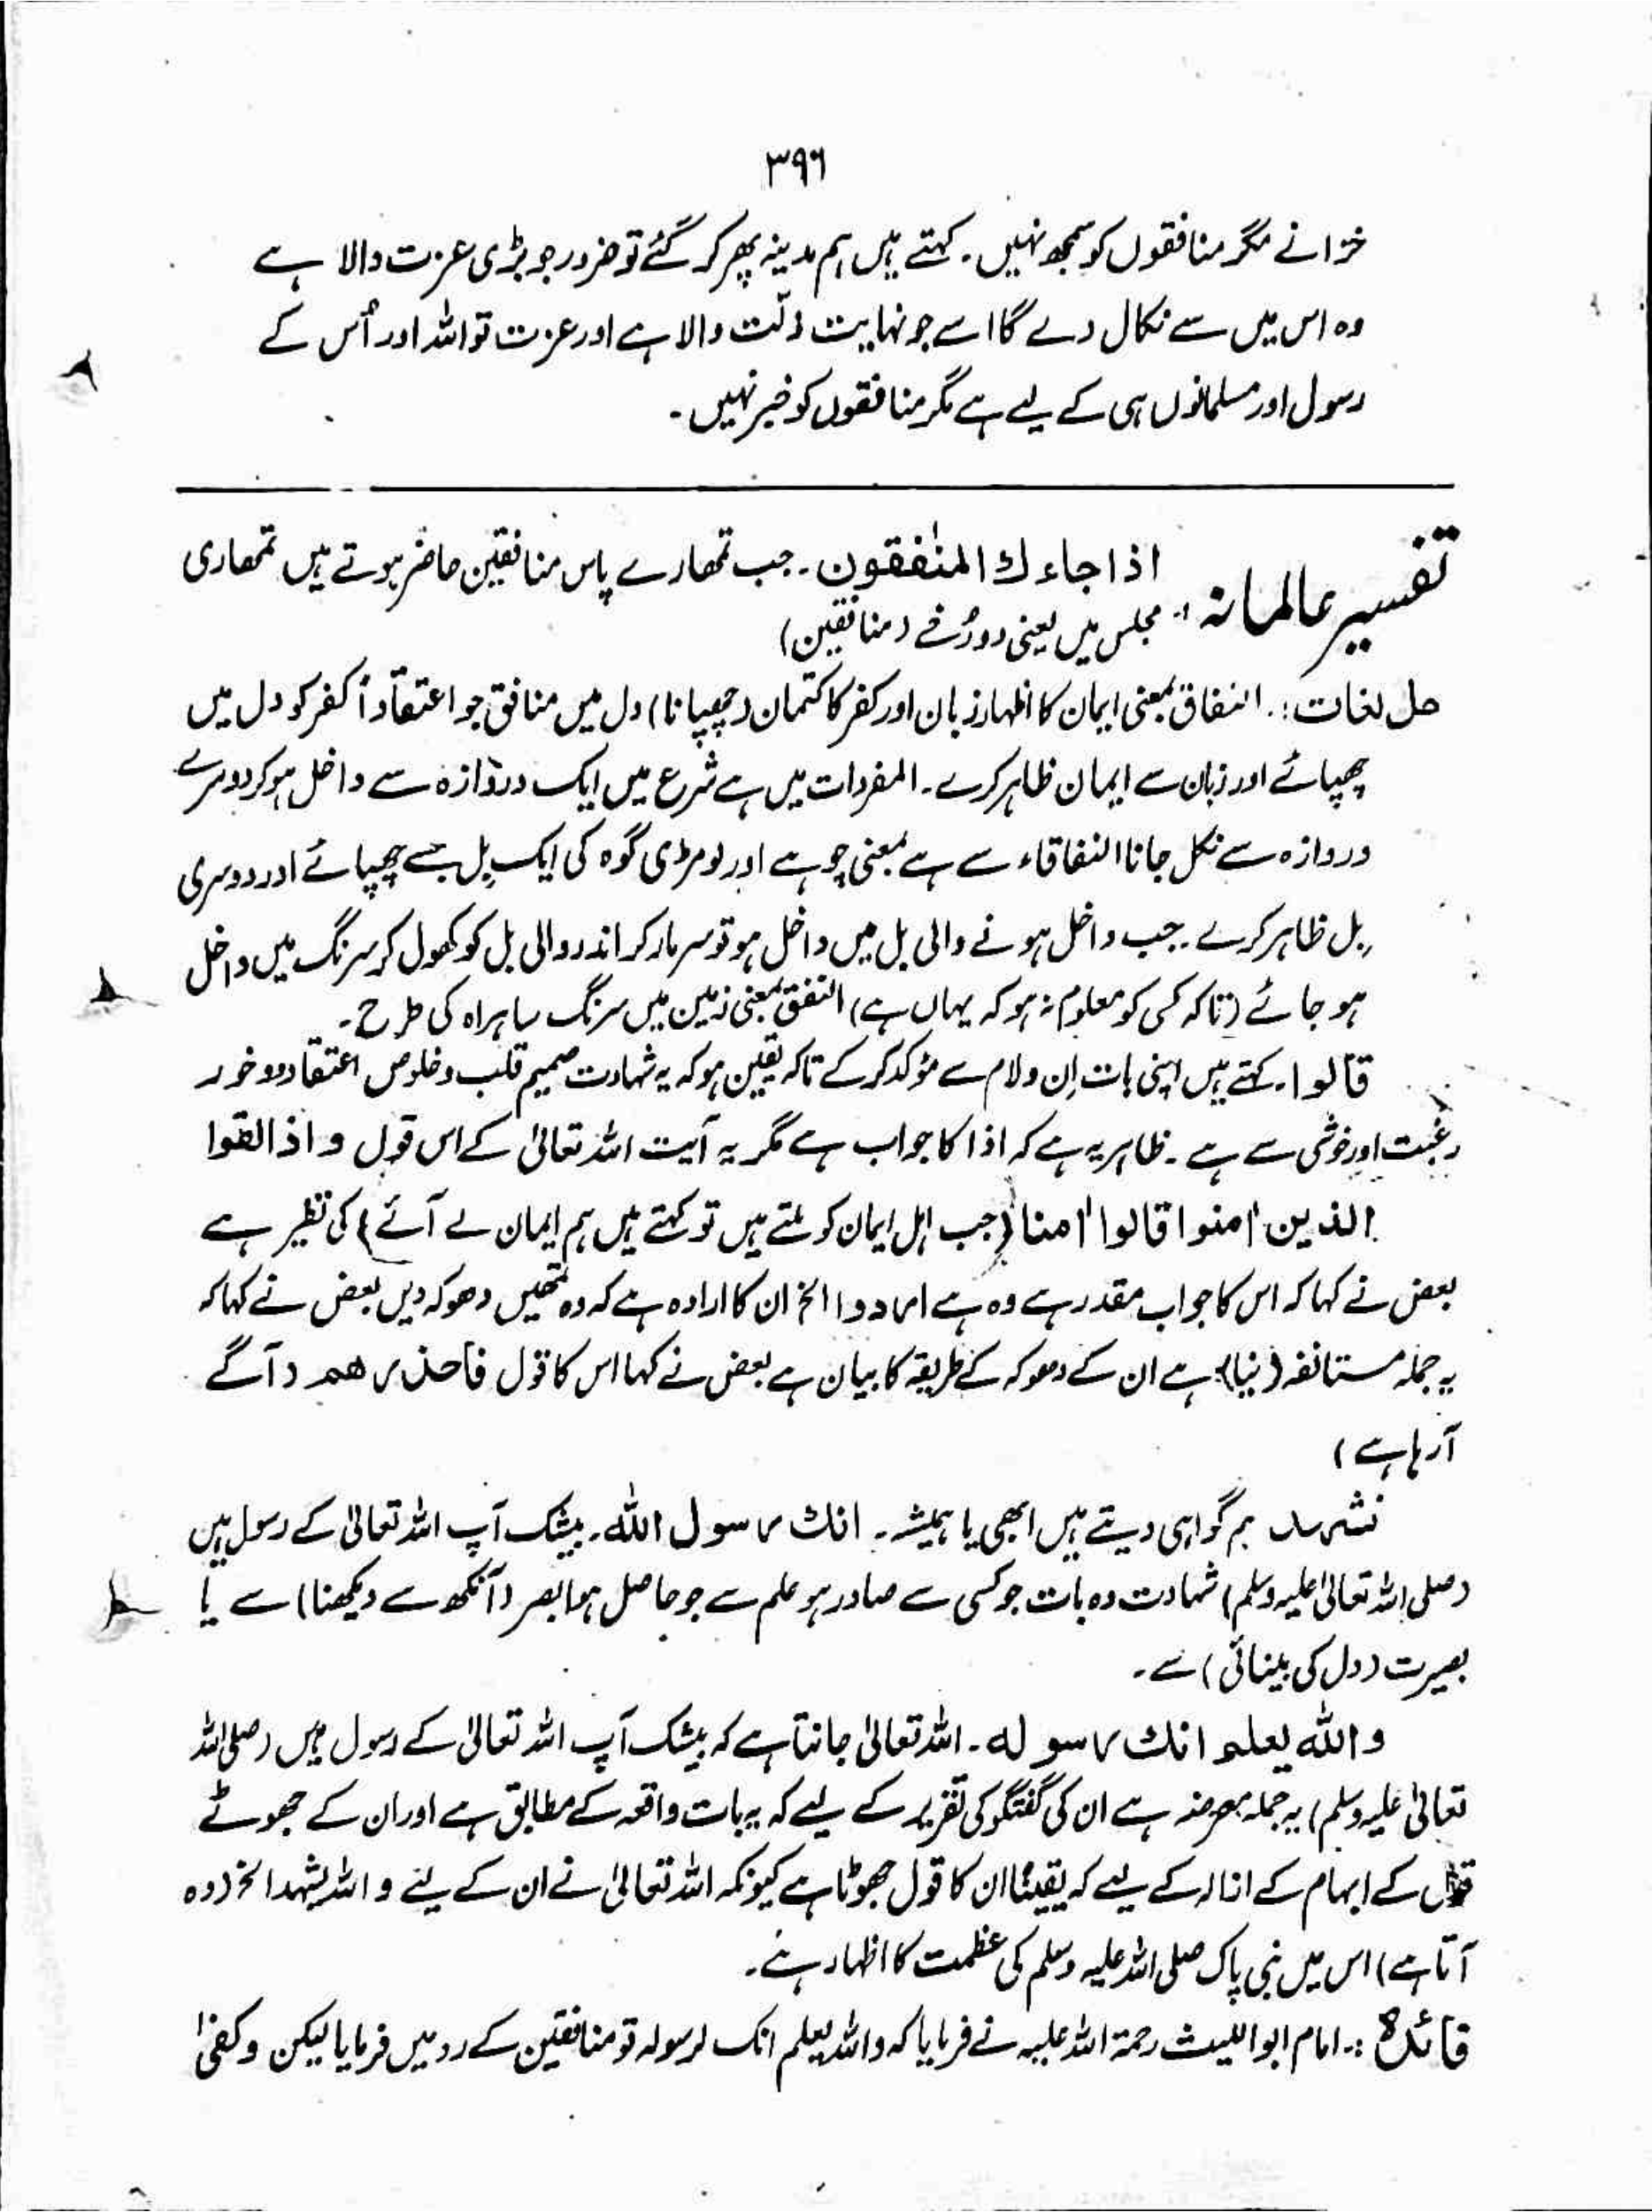 ۳۹۶
خزانے مگر منافقوں کو سمجھ نہیں۔ کہتے ہیں ہم مدینہ پھر کر گئے تو ضرور جو بڑی عزت والا ہے
وہ اس میں سے نکال دے گا اسے جو نہایت ذلّت والا ہے اور عزت تو اللہ اور اُس کے
رسول اور مسلمانوں ہی کے لیے ہے مگر منافقوں کو خبر نہیں۔
تفسیر عالمانہ :-
اذا جاءك المنٰفقون۔ جب تمھارے پاس منافقین حاضر ہوتے ہیں تمھاری
مجلس میں یعنی دو رُخے (منافقین)
حل لغات :۔ النفاق بمعنی ایمان کا اظہار زبان اور کفر کا کتمان (چھپانا) دل میں منافق جو اعتقاداً کفر کو دل میں
چھپائے اور زبان سے ایمان ظاہر کرے۔ المفردات میں ہے شرع میں ایک دروازہ سے داخل ہو کر دوسرے
دروازہ سے نکل جانا النفاقاء سے ہے بمعنی چوہے اور لومڑی گوہ کی ایک بِل جسے چھپائے اور دوسری
بِل ظاہر کرے۔ جب داخل ہونے والی بل میں داخل ہو تو سر مار کر اندر والی بل کو کھول کر سرنگ میں داخل
ہو جائے (تاکہ کسی کو معلوم نہ ہو کہ یہاں ہے) النفق بمعنی زمین میں سرنگ راہ کی طرح۔
قالوا۔ کہتے ہیں اپنی بات اِن ولام سے مؤکد کر کے تاکہ یقین ہو کہ یہ شہادت صمیم قلب و خلوص اعتقاد ووخور
رغبت اور خوشی سے ہے۔ ظاہر یہ ہے کہ اذا کا جواب ہے مگر یہ آیت اللہ تعالیٰ کے اس قول و اذا لقوا
الذین اٰمنوا قالوا اٰمنا (جب اہل ایمان کو ملتے ہیں تو کہتے ہیں ہم ایمان لے آئے) کی نظیر ہے
بعض نے کہا کہ اس کا جواب مقدر ہے وہ ہے ارادوا الخ ان کا ارادہ ہے کہ وہ تمھیں دھوکہ دیں بعض نے کہا کہ
یہ جملہ مستانفہ (نیا) ہے ان کے دھوکہ کے طریقہ کا بیان ہے بعض نے کہا اس کا قول فاحذرهم (آگے
آ رہا ہے)
نشهد ہم گواہی دیتے ہیں ابھی یا ہمیشہ۔ انك لرسول اللّٰه۔ بیشک آپ اللہ تعالیٰ کے رسول ہیں
(صلی اللہ تعالیٰ علیہ وسلم) شہادت وہ بات جو کسی سے صادر ہو علم سے جو حاصل ہوا بصر (آنکھ سے دیکھنا) سے یا
بصیرت (دل کی بینائی) سے۔
و اللّٰه یعلم انك لرسوله۔ اللہ تعالیٰ جانتا ہے کہ بیشک آپ اللہ تعالیٰ کے رسول ہیں (صلی اللہ
تعالیٰ علیہ وسلم) یہ جملہ معرضہ ہے ان کی گفتگو کی تقریر کے لیے کہ یہ بات واقعہ کے مطابق ہے اور ان کے جھوٹے
قول کے ابہام کے ازالہ کے لیے کہ یقینًا ان کا قول جھوٹا ہے کیونکہ اللہ تعالیٰ نے ان کے لئے و اللہ یشہد الخ (وہ
آتا ہے) اس میں نبی پاک صلی اللہ علیہ وسلم کی عظمت کا اظہار ہے۔
فائدہ :۔ امام ابو اللیث رحمۃ اللہ علیہ نے فرمایا کہ واللہ یعلم انک لرسولہ تو منافقین کے رد میں فرمایا لیکن و کفیٰ